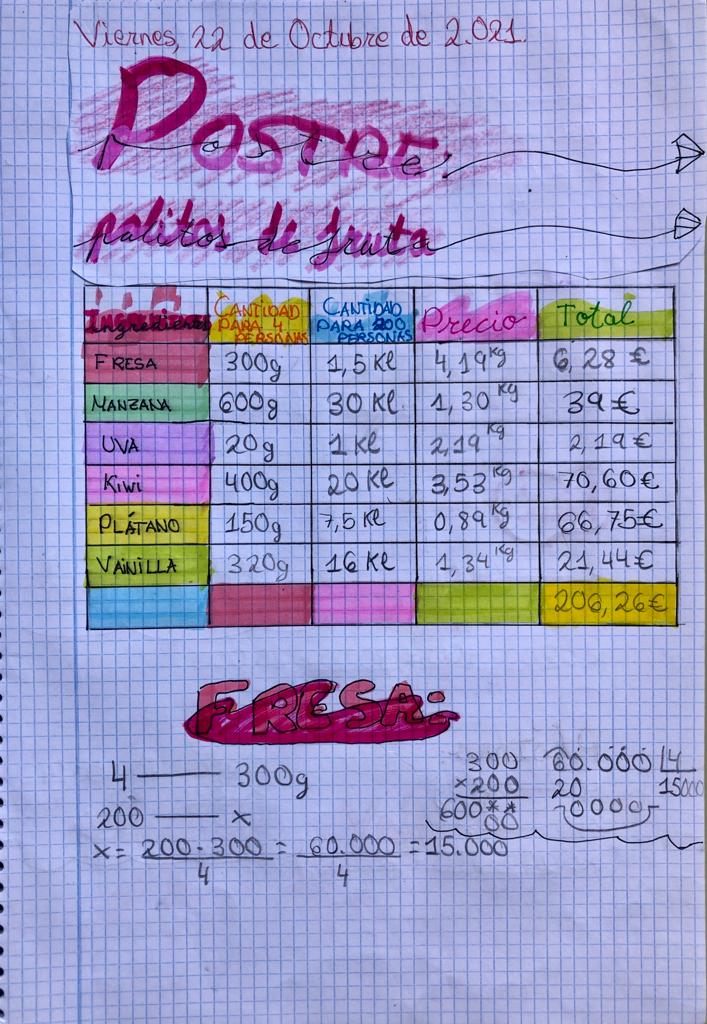 Viernes, 22 de Octubre de 2.021.
POSTRE:
postre:
palitos de fruta
Ingredientes CANTIDAD PARA 4 PERSONAS CANTIDAD PARA 200 PERSONAS Precio Total
FRESA 300g 1,5 Kl 4,19 Kg 6,28 €
MANZANA 600g 30 Kl 1,30 Kg 39 €
UVA 20g 1 Kl 2,19 Kg 2,19 €
KIWI 400g 20 Kl 3,53 Kg 70,60 €
PLÁTANO 150g 7,5 Kl 0,89 Kg 66,75 €
VAINILLA 320g 16 Kl 1,34 Kg 21,44 €
206,26 €
FRESA:
4 — 300g
200 — x
x = 200 · 300 / 4 = 60.000 / 4 = 15.000
300
×200
600**
00
60.000 |4
20 15000
0000